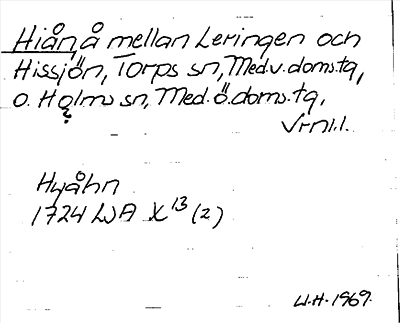 Hiån, å mellan Leringen och
Hissjön, Torps sn, Med.v.doms.tg,
o. Holms sn, Med.ö.doms.tg,
?
Vrnl.l.
Hyåhn
1724 LJA X 13 (2)
W.H. 1969.